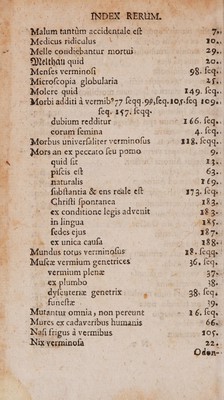 INDEX RERUM.
Malum tantùm accidentale est 7.
Medicus ridiculus 10.
Melle condiebantur mortui 29.
Melthau quid 20.
Menses verminosi 98. seq.
Microscopia globularia 25.
Molere quid 149. seq.
Morbi additi à vermib9 77 seqq. 98. seq. 105. seq 109.
seq. 157. seqq.
dubium redditur 166. seq.
eorum semina 4. seq.
Morbus universaliter verminosus 118. seqq.
Mors an ex peccato seu pomo 9.
quid sit 12.
piscis est 63.
naturalis 169.
substantia & ens reale est 173. seq.
Christi spontanea 183.
ex conditione legis advenit 183.
in lingua 185.
sedes ejus 187.
ex unica causa 188.
Mundus totus verminosus 18. seqq.
Muscæ vermium genetrices 36. seq.
vermium plenæ 37.
ex plumbo 38.
dysenteriæ genetrix 38. seq.
funestæ 39.
Mutantur omnia, non pereunt 16. seq.
Mures ex cadaveribus humanis 66.
Nasi frigus à vermibus 105.
Nix verminosa 22.
Odon-